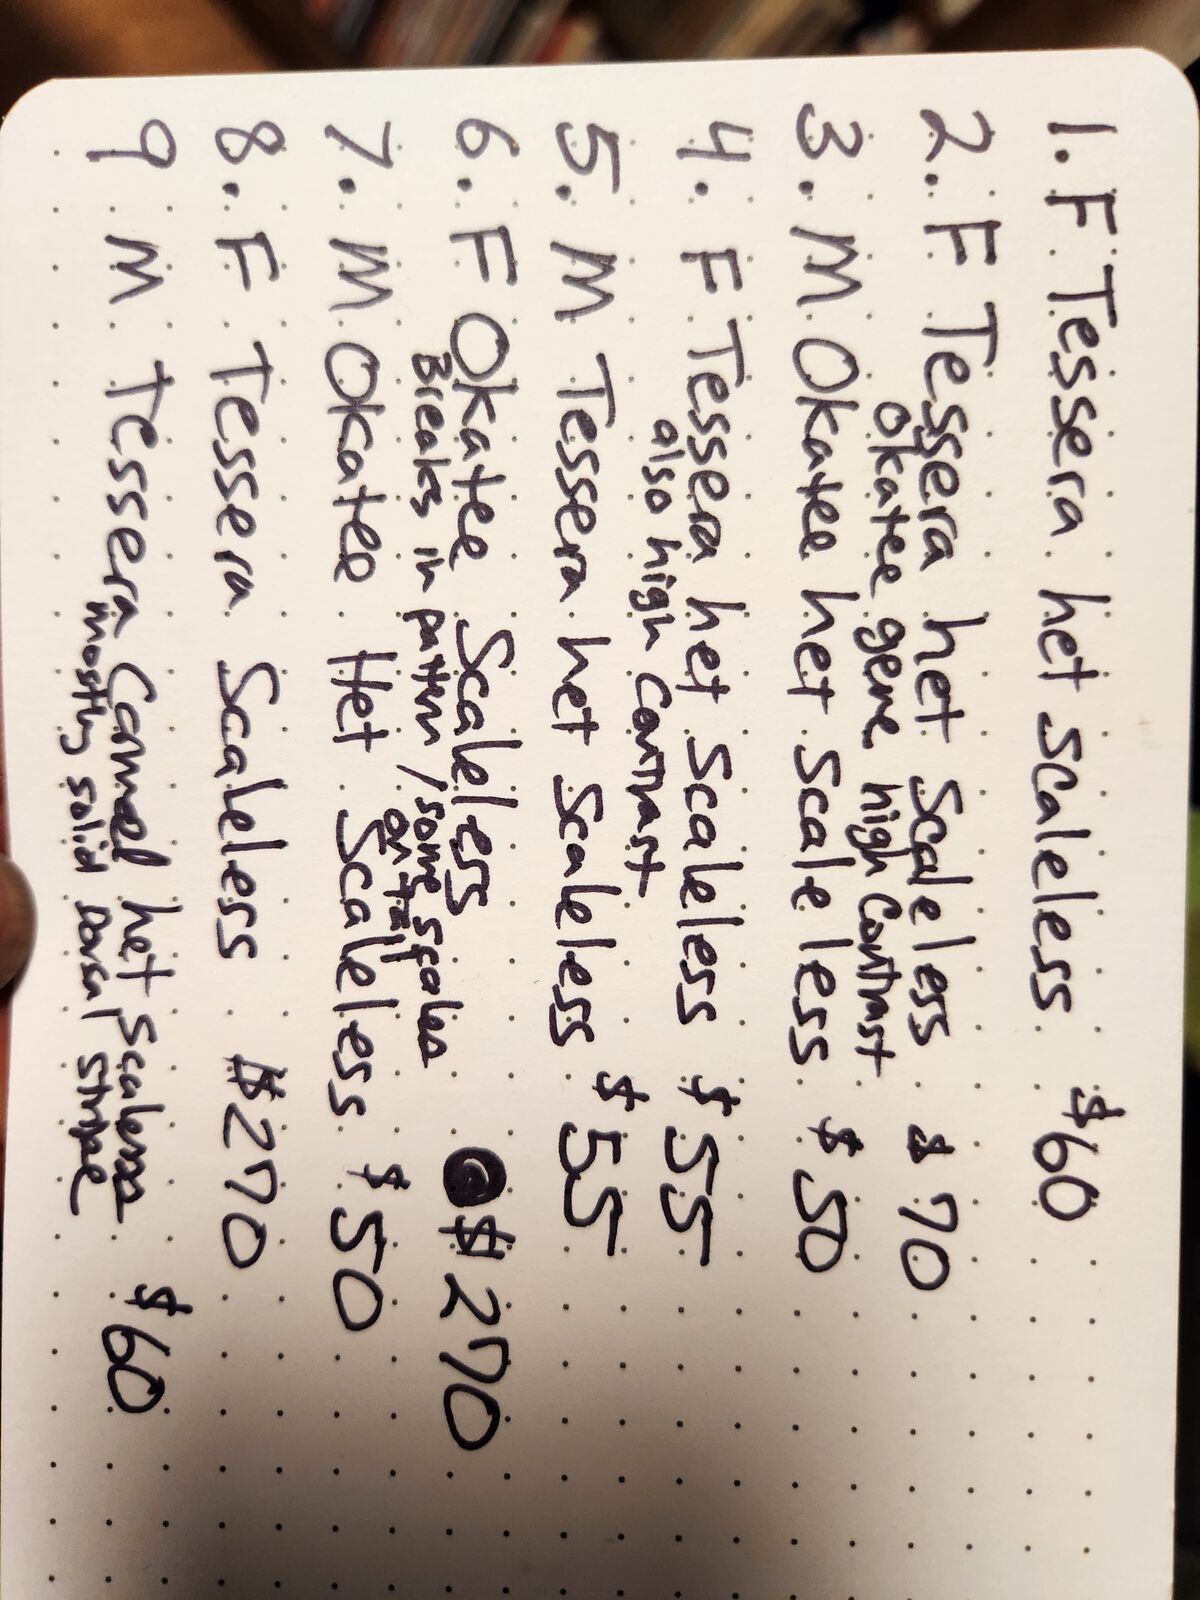 1. F Tessera het scaleless $60
2. F Tessera het Scaleless $70
Okatee gene high Contrast
3. M Okatee het Scaleless $50
4. F Tessera het Scaleless $55
also high Contrast
5. M Tessera het Scaleless $55
6. F Okatee Scaleless $270
Breaks in pattern / some scales
on tail
7. M Okatee Het Scaleless $50
8. F Tessera Scaleless $270
9 M Tessera Caramel het Scaleless $60
mostly solid Dorsal stripe